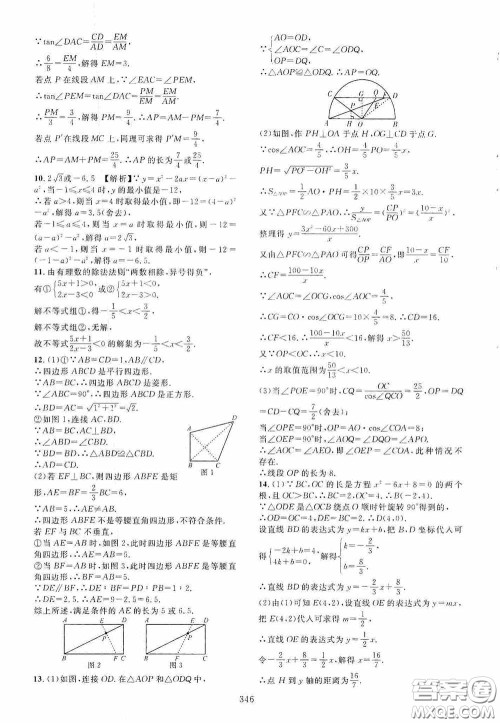 ∵tan∠DAC=CD/AD=EM/AM,
∴6/8=EM/4,解得EM=3.
若点P在线段AM上,∵∠EAC=∠PEM,
∴tan∠EAC=tan∠PEM=EM/AM=PM/EM=3/4,
∴PM=9/4,∴AP=AM-PM=7/4.
若点P′在线段MC上,同理可求得P′M=9/4,
∴AP=AM+PM=25/4,∴AP的长为7/4或25/4.
10.2√3或-6.5 【解析】∵y=x²-2ax=(x-a)²-
a²,当-1≤x≤4时,y的最小值是-12,
∴若a>4,则当x=4时取得最小值,即-12=(4-
a)²-a²,解得a=3.5(舍去),
若-1≤a≤4,则当x=a时取得最小值,-12=
(a-a)²-a²,解得a=2√3,
若a<-1,则当x=-1时取得最小值,-12=
(-1-a)²-a²,解得a=-6.5.
11.由有理数的除法法则“两数相除,异号得负”,
有①{5x+1>0, 2x-3<0或②{5x+1<0, 2x-3>0,
解不等式组①,得-1/5<x<3/2,
解不等式组②,无解,
故不等式(5x+1)/(2x-3)<0的解集为-1/5<x<3/2.
12.(1)①∵AB=CD=1,AB∥CD,
∴四边形ABCD是平行四边形.
∵AB=BC,∴四边形ABCD是菱形.
∵∠ABC=90°,∴四边形ABCD是正方形.
∴BD=AC=√(1²+1²)=√2.
②如图1,连接AC,BD.
∵AB=BC,AC⊥BD,
∴∠ABD=∠CBD.
∵BD=BD,
∴△ABD≌△CBD,
∴AD=CD.
图1
(2)若EF⊥BC,则四边形ABFE是矩
形,AE=BF=2/3BC=6,
∵AB=5,∴AE≠AB,
∴四边形ABFE不是等腰直角四边形,不符合条件.
若EF与BC不垂直,
①当AE=AB时,如图2,此时四边形ABFE是等腰直
角四边形,∴AE=AB=5.
②当BF=AB时,如图3,此时四边形ABFE是等腰直
角四边形,∴BF=AB=5,
∵DE∥BF,∴DE∶BF=PD∶PB=1∶2,
∴DE=2.5,∴AE=9-2.5=6.5.
综上所述,满足条件的AE的长为5或6.5.
图2 图3
13.(1)如图,连接OD,在△AOP和△ODQ中,
∵{AO=OD, ∠AOC=∠CDO, OP=DQ,
∴△AOP≌△ODQ,∴AP=OQ.
(2)如图,作PH⊥OA于点H,OG⊥CD于点G,
∵cos∠AOC=4/5,∴OH=4/5PO=4/5x,
∴PH=√(PO²-OH²)=3/5x.
∴S△AOP=1/2AO·PH=3x.
又∵△PFC∽△PAO,∴y/S△AOP=(CP/PO)²=((10-x)/x)².
整理得y=(3x²-60x+300)/x.
又由△PFC∽△PAO可得CP/OP=CF/AO,即(10-x)/x=CF/10,
∴CF=(100-10x)/x.
∵cos∠AOC=cos∠OCG=4/5,
∴CG=CO·cos∠OCG=10×4/5=8.∴CD=16.
∴CF<16.∴(100-10x)/x<16.解得x>50/13.
又∵OP<OC,∴x<10.
∴x的取值范围为50/13<x<10.
(3)当∠POE=90°时,CQ=OC/cos∠QCO=25/2,OP=DQ
=CD-CQ=7/2(舍去);
当∠OPE=90°时,OP=AO·cos∠COA=8;
当∠OEP=90°时,∠AOB=90°,此种情况不
存在.
∴线段OP的长为8.
14.(1)∵BC,OC的长是方程x²-6x+8=0的两个
根,且OC>BC,∴BC=2,OC=4,∴B(-2,4).
∵△ODE是△OCB绕点O顺时针旋转90°得到的,
∴OD=OC=4,DE=BC=2,∴D(4,0).
设直线BD的表达式为y=kx+b,把B,D坐标代入可
得{-2k+b=4, 4k+b=0,解得{k=-2/3, b=8/3.
∴直线BD的表达式为y=-2/3x+8/3.
(2)由(1)可知E(4,2),设直线OE的表达式为y=mx,
把E(4,2)代入可求得m=1/2,
∴直线OE的表达式为y=1/2x.
令-2/3x+8/3=1/2x,解得x=16/7.
∴点H到y轴的距离为16/7.
346